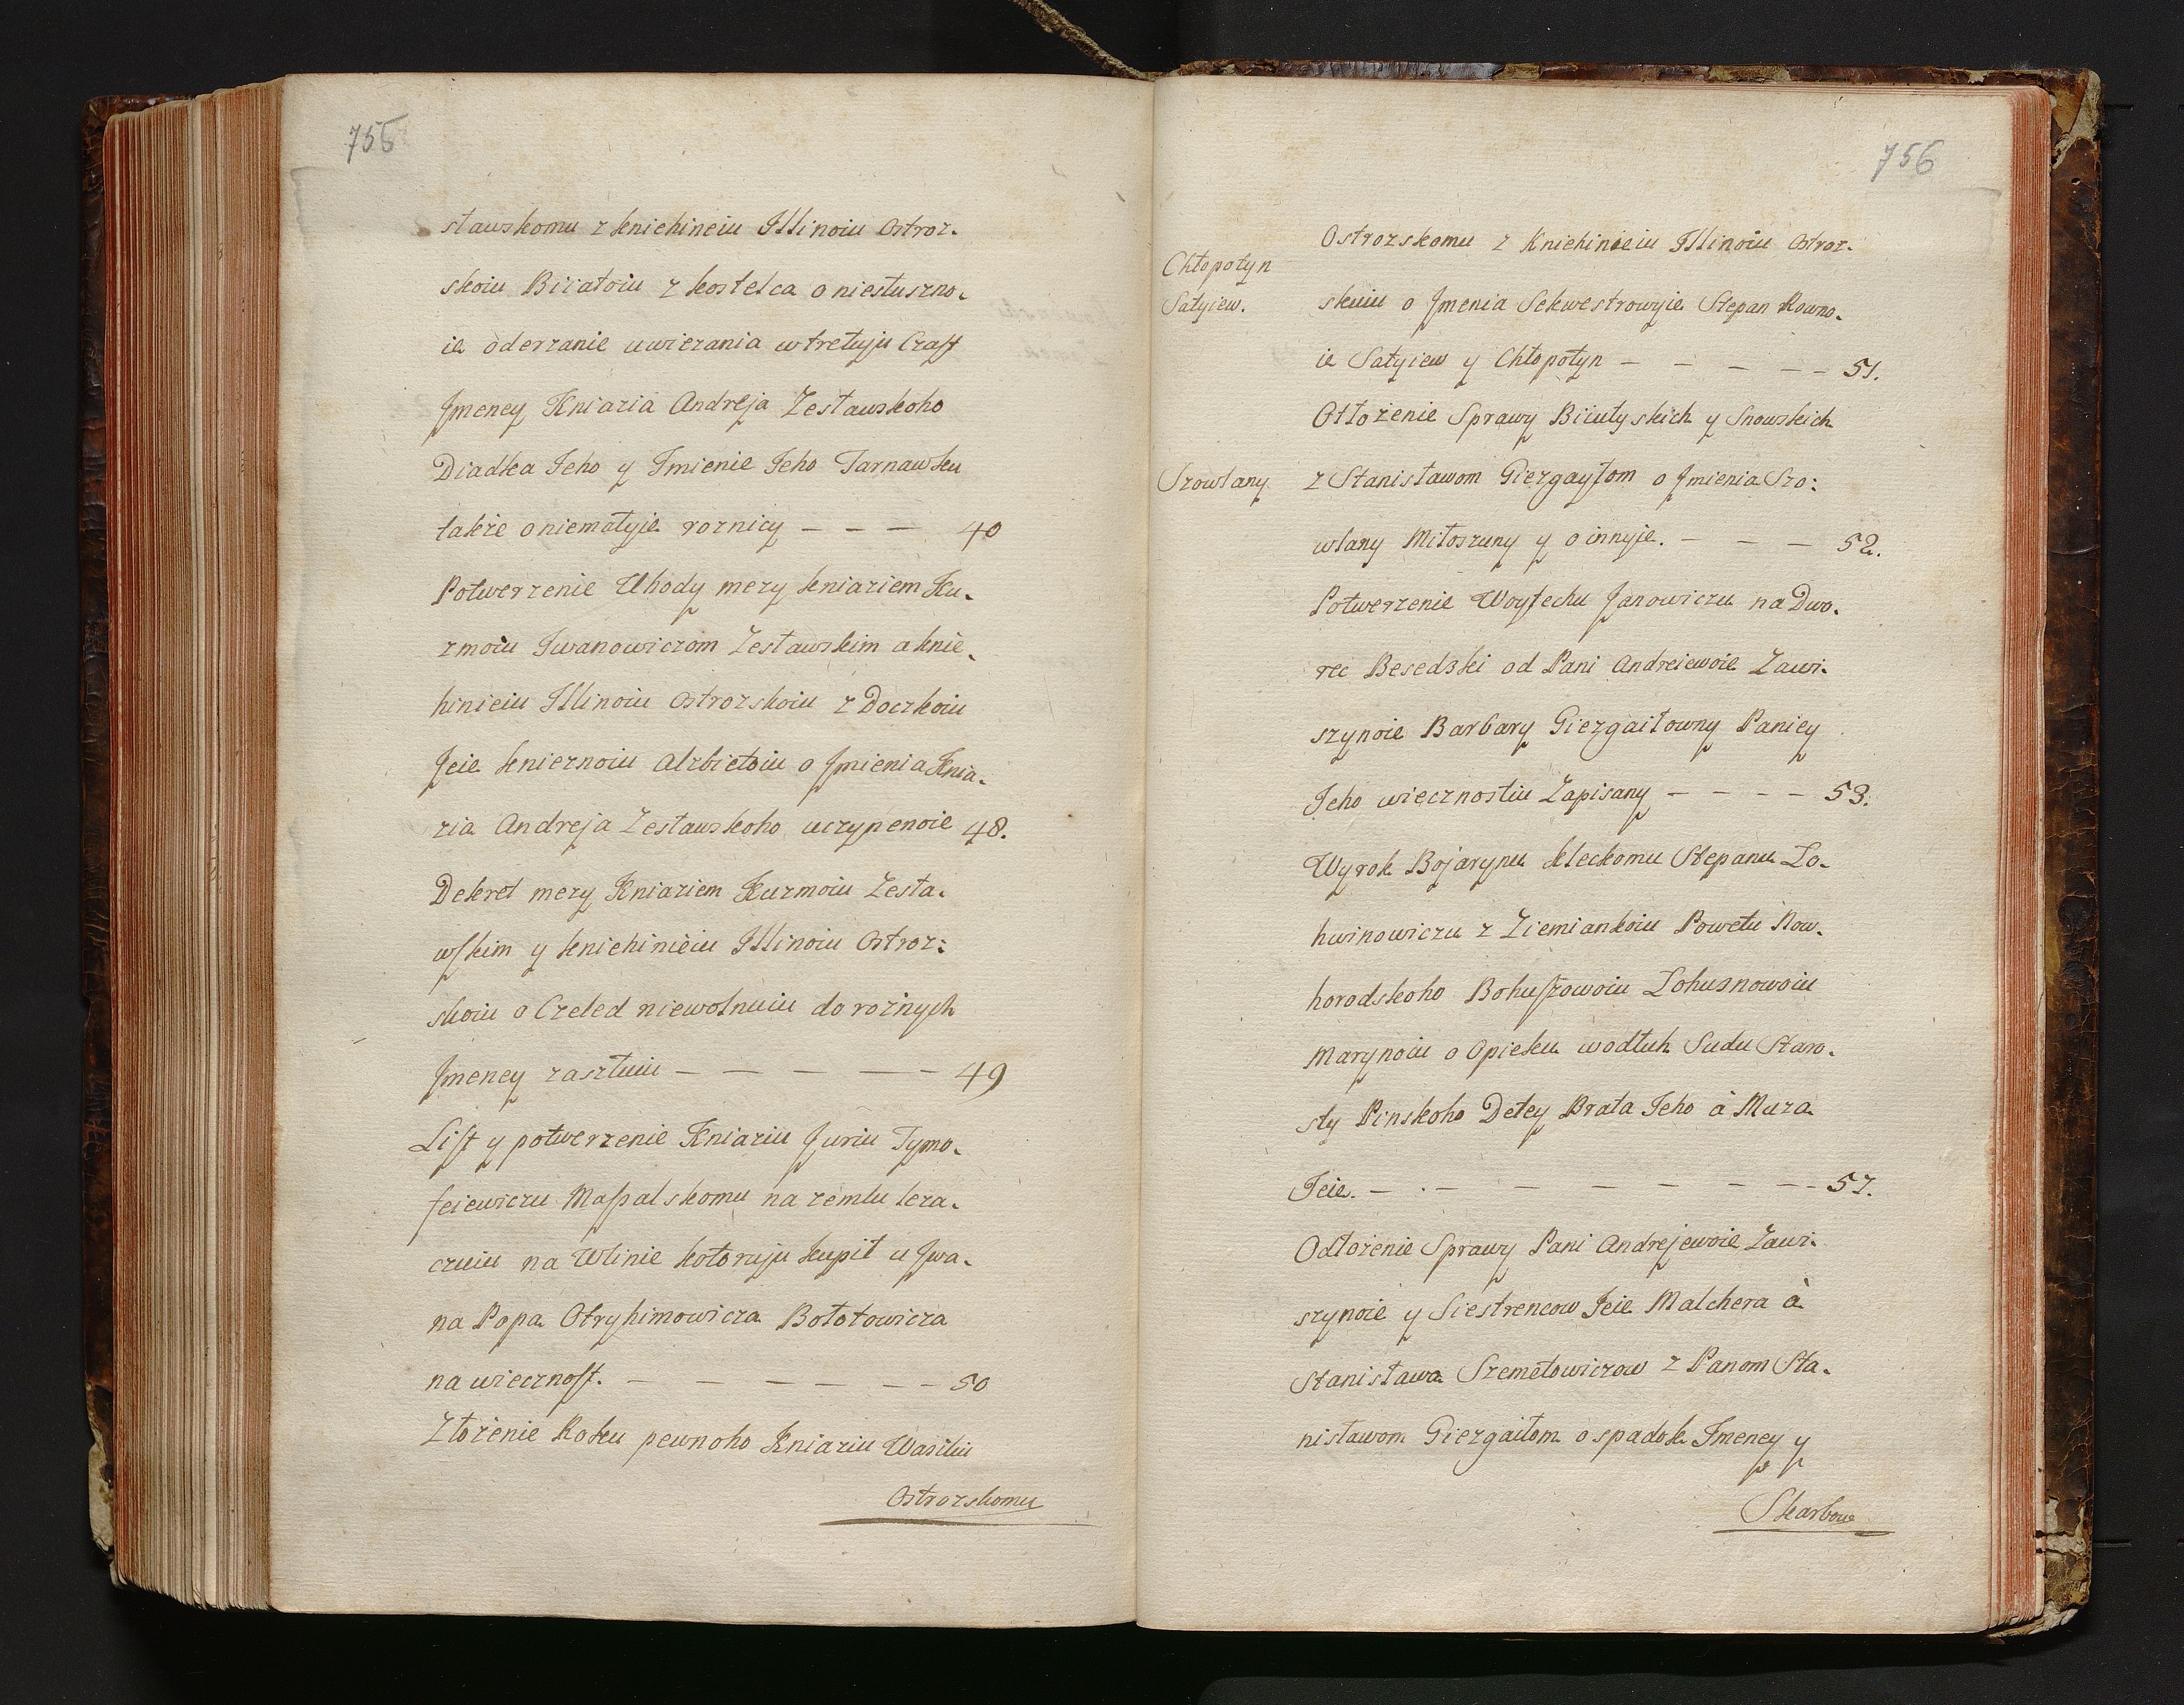 755
stawskomu z kniehineiu Illinoiu Ostroz-
skoiu Biiatoiu z kostelca o niesłuszno-
ie oderzanie uwiezania w tretuju Czast
Jmeney Kniazia Andreja Zesławskoho
Diadka Jeho y Jmienie Jeho Tarnawku
także o niemałyje roznicy - - - 40
Potwerzenie Uhody mezy kniaziem Ku-
zmoiu Jwanowiczom Zesławskim a knie-
hinieiu Illinoiu Ostrozskoiu z Doczkoiu
Jeie knieznoiu Alzbietoiu o Jmienia Knia-
zia Andreja Zesławskoho uczynenoie 48.
Dekret mezy Kniaziem Kuzmoiu Zesła-
wskim y kniehinieiu Illinoiu Ostroz:
skoiu o Czeled niewolnuiu do rożnych
Jmeney zaszłuiu - - - - - 49
List y potwerzenie Kniaziu Juriu Tymo-
feiewiczu Massalskomu na zemlu leza-
czuiu na Wlinie kotoruju kupił u Jwa-
na Popa Otryhimowicza Bołotowicza
na wiecznost. - - - - - - 50
Złożenie Roku pewnoho Kniaziu Wasiliu
Ostrozskomu
756
Ostrozskomu z Kniehinieiu Illinoiu Ostroz-
Chłopotyn
Satyiew.
skuiu o Jmenia Sekwestrowyje Stepan Rowno-
ie Satyiew y Chłopotyn - - - - - 51.
Otłożenie Sprawy Biiutyskich y Snowskich
Szowlany
z Stanisławom Giezgayłom o Jmienia Szo:
wlany Miłoszuny y o innyje. - - - 52.
Potwerzenie Woytechu Janowiczu na Dwo-
rec Besedski od Pani Andreiewoie Zawi-
szynoie Barbary Giezgaiłowny Paniey
Jeho wiecznostiu Zapisany - - - - 53.
Wyrok Bojarynu kleckomu Stepanu Lo-
hwinowiczu z Ziemiankoiu Powetu Now-
horodskoho Bohuszowoiu Lohusnowoiu
Marynoiu o Opieku wodłuh Sudu Staro-
sty Pinskoho Detey Brata Jeho à Muza
Jeie. - - - - - - - 57.
Odłożenie Sprawy Pani Andrejewoie Zawi-
szynoie y Siestrencow Jeie Malchera à
Stanisława Szemetowiczow z Panom Sta-
nisławom Giezgaiłom o spadok Jmeney y
Skarbow